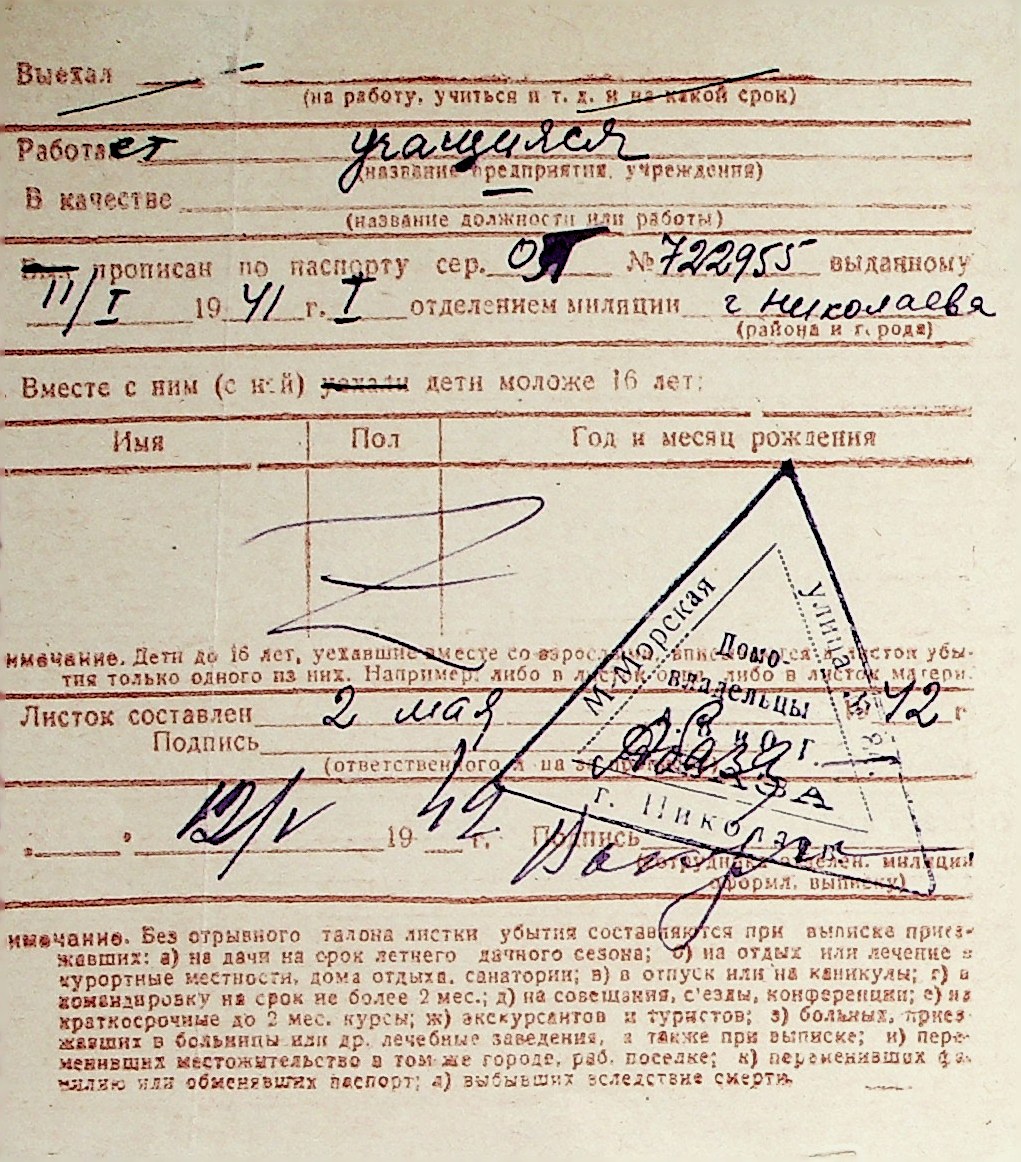 Выехал
(на работу, учиться и т. д. и на какой срок)
Работает учащийся
(название предприятия, учреждения)
В качестве —
(название должности или работы)
Был прописан по паспорту сер. № 722955 выданному
11/I 1941 г. I отделением милиции г Николаева
(района и города)
Вместе с ним (с ней) уехали дети моложе 16 лет:
Имя Пол Год и месяц рождения
имечание. Дети до 16 лет, уехавшие вместе со взрослыми, вписываются в листок убы-
тия только одного из них. Например: либо в листок отца, либо в листок матери.
Листок составлен 2 мая 1942 г
Подпись
(ответственного лица за прописку)
М-Морская
улица №
Домо-
владельцы
г. Николаев
12/V 1942 г. Подпись
(сотрудника отделен. милиции
оформл. выписку)
имечание. Без отрывного талона листки убытия составляются при выписке приез-
жавших: а) на дачи на срок летнего дачного сезона; б) на отдых или лечение в
курортные местности, дома отдыха, санатории; в) в отпуск или на каникулы; г) в
командировку на срок не более 2 мес.; д) на совещания, с'езды, конференции; е) на
краткосрочные до 2 мес. курсы; ж) экскурсантов и туристов; з) больных, приез-
жавших в больницы или др. лечебные заведения, а также при выписке; и) пере-
менивших местожительство в том же городе, раб. поселке; к) переменивших фа-
милию или обменявших паспорт; л) выбывших вследствие смерти.